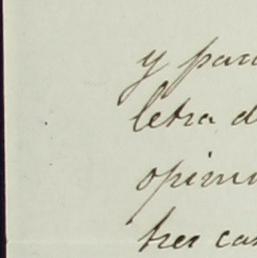 y para
letra d
opinio
tres cas